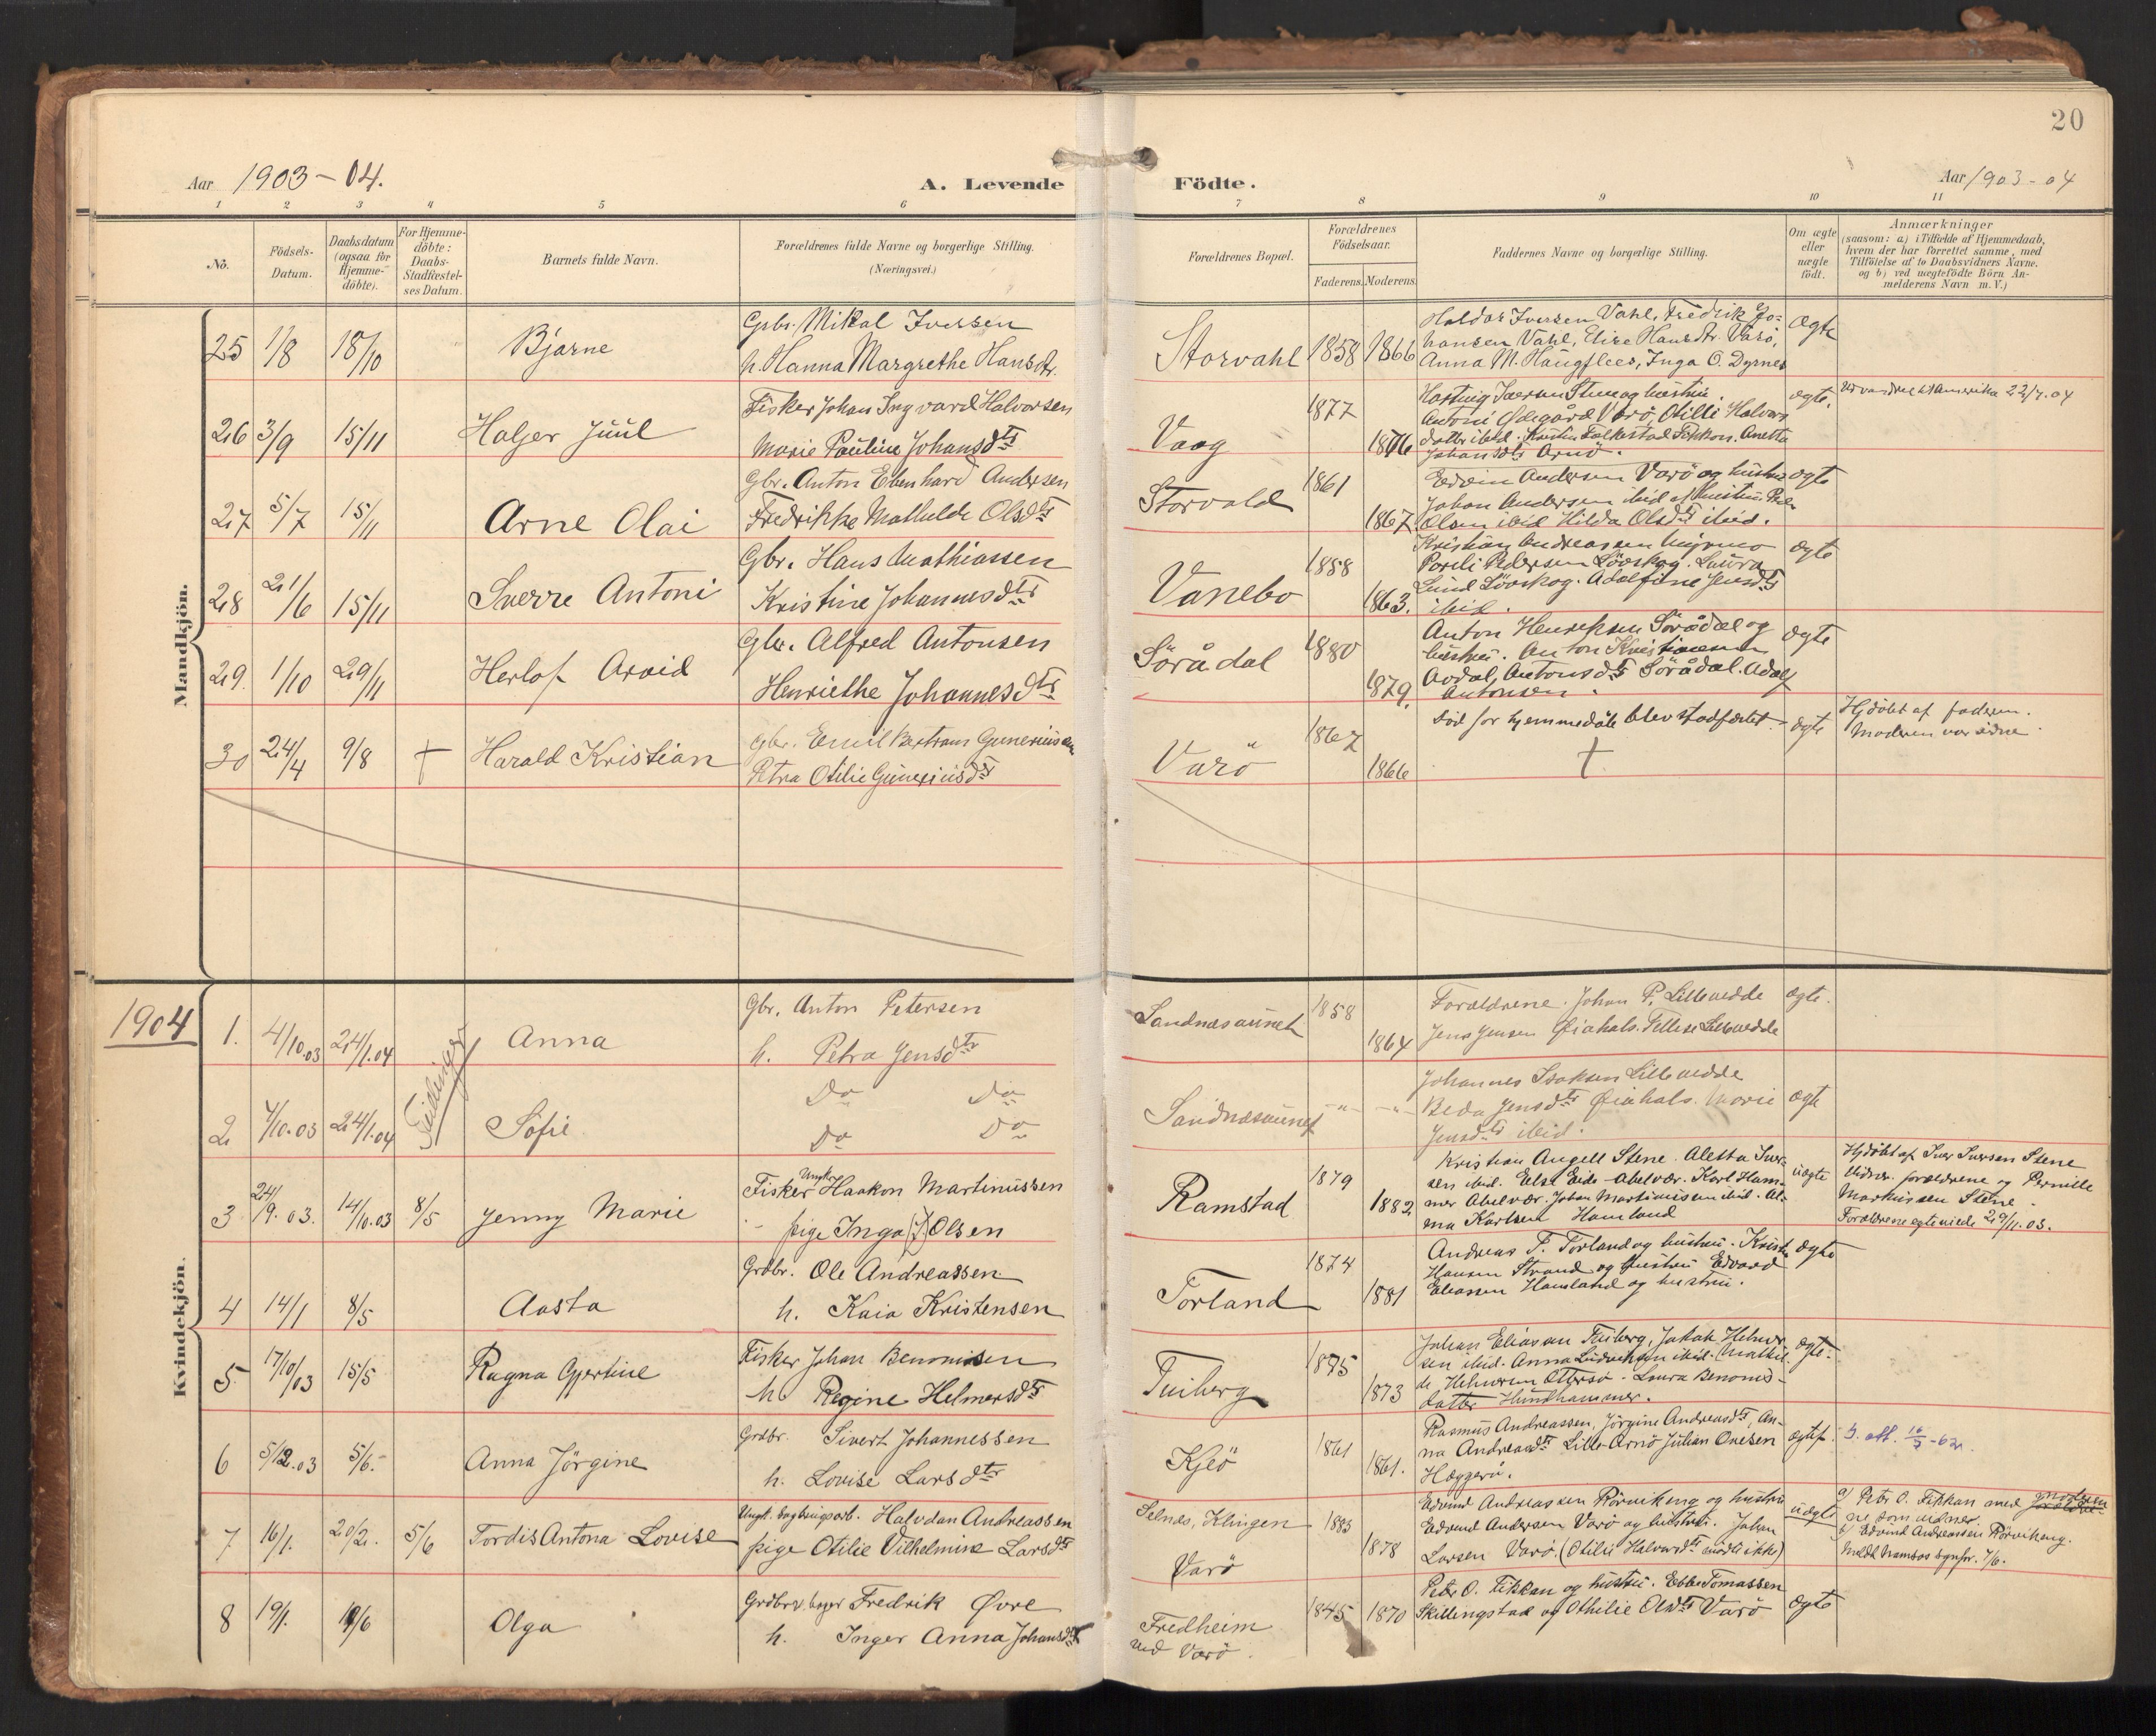 20
Aar 1903-04.
A. Levende Födte.
Aar 1903-04
1 2 3 4 5 6 7 8 9 10 11
Nö.
Födsels-
Datum.
Daabsdatum
(ogsaa for
Hjemme-
döbte).
For Hjemme-
döbte:
Daabs-
Stadfæstel-
ses Datum.
Barnets fulde Navn.
Forældrenes fulde Navne og borgerlige Stilling.
(Næringsvei.)
Forældrenes Bopæl.
Forældrenes
Födselsaar.
Faderens. Moderens.
Faddernes Navne og borgerlige Stilling.
Om ægte
eller
uægte
födt.
Anmærkninger
(saasom: a) i Tilfælde af Hjemmedaab,
hvem der har forrettet samme, med
Tilföielse af to Daabsvidners Navne.
og b) ved uægtefödte Börn An-
melderens Navn m. V.)
Mandkjön.
25 1/8 18/10 Bjarne
Gbr. Mikal Iversen
h. Hanna Margrethe Hansdtr.
Storvahl 1858 1866
Haldor Iversen Vahl, Fredrik Jo-
hansen Vahl, Elise Hansdtr. Varö,
Anna M. Haugflees, Inga O. Dyrnes
ægte
26 3/9 15/11 Holger Juul
Fisker Johan Ingvard Halvorsen
Marie Pauline Johansdtr
Vaag 1877 1876
Hartvig Iversen Stene og hustru.
Antoni Varö, Otilli Halvors
datter ibid. Kristine Falkestad Fikkan. Anetta
Johansdtr Arnö.
ægte.
Udvandret til Amerika 22/7.04
27 5/7 15/11 Arne Olai
Gbr. Anton Ebenhard Andersen
Fredrikke Mathilde Olsdtr
Storvold 1861 1867.
Edvin Andersen Varö og hustru
Johan Andersen ibid og hustru. Peder
Olsen ibid Hilda Olsdtr ibid.
ægte
28 21/6 15/11 Sverre Antoni
Gbr. Hans Mathiassen
Kristine Johannesdtr
Vanebo 1858 1863.
Kristian Andreassen
Pareli Pedersen Lövskog. Laura
Lund Lövskog. Adolfine Jensdtr
ibid.
ægte
29. 1/10 29/11 Herlof Arvid
Gbr. Alfred Antonsen
Henriethe Johannesdtr
Sörådal 1880 1879.
Anton Henriksen Sörådal og
hustru. Anton Kristiansen
Aodal, Antonsdtr Sörådal. Adolf
Antonsen.
ægte
30 24/4 9/8 † Harald Kristian
Gbr. Emil Bertram Guneriussen
Petra Otilie Guneriusdtr
Varö 1867 1866
Död för hjemmedåb blev stadfæstet.
†
ægte
Hjdöbt af faderen.
Moderen var vidne.
Kvindekjön.
1904
1. 4/10.03 24/1.04 Anna
Tvillinger
Gbr. Anton Petersen
h. Petra Jensdtr
Sandnæsaunet 1858 1864
Forældrene. Johan P. Lillevedde
Jens Jensen Øiahals. Lillevedde
ægte.
2 4/10.03 24/1.04 Sofie
Do Do
Do Do
Sandnæsaunet -"- -"-
Johannes Isaksen Lillevedde
Beda Jensdtr Øiahals. Marie
Jensdtr ibid.
ægte
3 24/9.03. 14/10.03 8/5 Jenny Marie
Ungkar
Fisker Haakon Martinussen
- pige Inga (J.) Olsen
Ramstad 1879 1882
Kristian Angell Stene. Aletta Iver-
sen ibid. Else Eide Abelvær. Karl Ham-
mer Abelvær. Johan Martinussen ibid. Al-
ma Karlsen Hamland
uægte
Hjdöbt af Iver Iversen Stene
Vidner. forældrene og Pernille
Markussen Stene.
Forældrene egteviede 29/11.03.
4 14/1 8/5 Aasta
Grdbr. Ole Andreassen
h. Kaia Kristensen
Torland 1874 1881
Andreas P. Torland og hustru. Kristen
Hansen Strand og hustru Edvard
Eliassen Hamland og hustru.
ægte
5 17/10/03 15/5 Ragna Gjertine
Fisker Johan Benonisen
h. Regine Helmersdtr
Fuiberg 1875 1873
Johan Eliassen Fuiberg, Jakob Helmer-
sen ibid. Anna Ludviksen ibid. Mathil-
de Helmersen Ottersö. Laura Benonis-
datter Hundhammer.
ægte.
6 5/12.03 5/6. Anna Jörgine
Grdbr. Sivert Johannessen
h. Lovise Larsdtr
Kjeö 1861 1861.
Rasmus Andreassen, Jörgine Andreasdtr, An-
na Andreasdtr Lille-Arnö Julian Ovesen
Hæggerö.
ægtef.
b. att. 16/7-62.
7 16/1. 20/2. 5/6 Tordis Antona Lovise
Ungk. dag Halvdan Andreassen
pige Otilie Vilhelmine Larsdtr
Selnæs, Klingen
Varö
1883 1878
Edvind Andreassen Rörvikeng og hustru
Edvind Andersen Varö og hustru. Johan
Larsen Varö. (Otilie Halvordtr mödte ikke)
uægte
a) Peter O. Fikkan med moderen
ne som vidner.
b) Edvind Andreassen Rörvikeng.
Meldt Namsos 7/6.
8 19/1. 19/6 Olga
Grdbr. Fredrik Øvre
h. Inger Anna Johansdtr
Fredheim
ved Varö.
1845 1870
Peter O. Fikkan og hustru. Ebbe Tomassen
Skillingstad og Othilie Olsdtr Varö
ægte